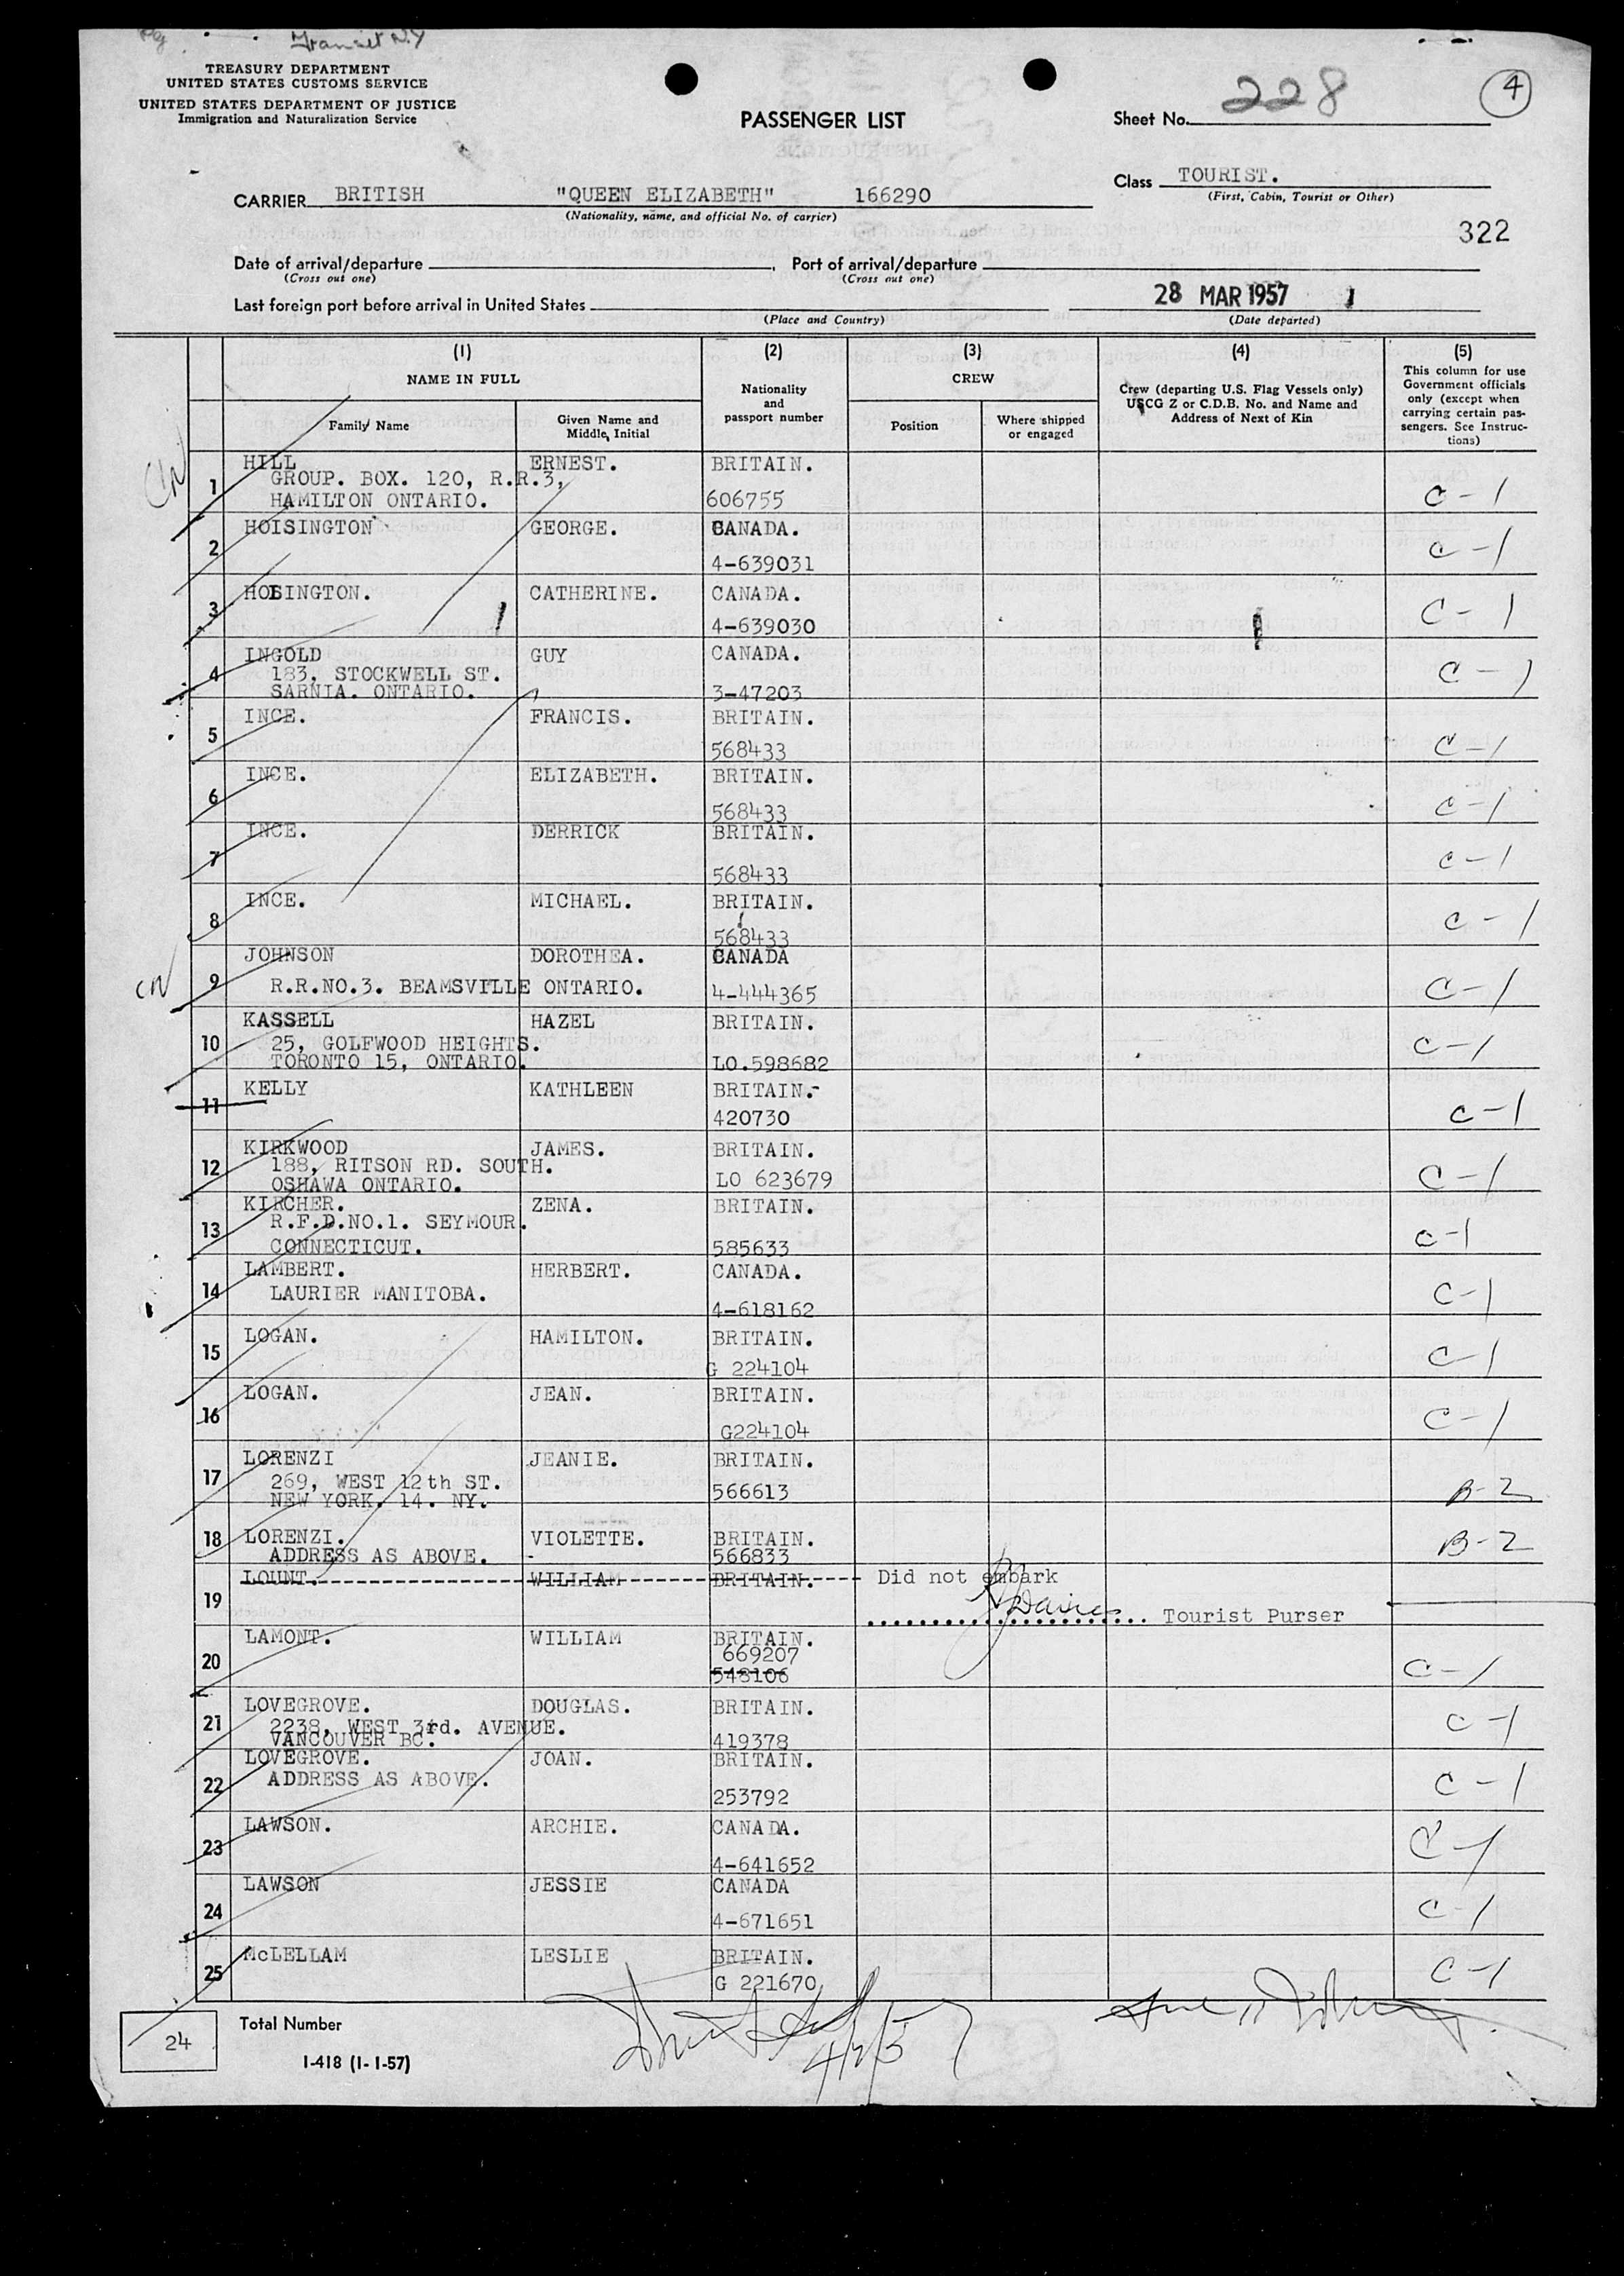 Transit N.Y
TREASURY DEPARTMENT
UNITED STATES CUSTOMS SERVICE
UNITED STATES DEPARTMENT OF JUSTICE
Immigration and Naturalization Service
PASSENGER LIST
Sheet No. 228
4
Class TOURIST.
(First, Cabin, Tourist or Other)
CARRIER BRITISH "QUEEN ELIZABETH" 166290
(Nationality, name, and official No. of carrier)
322
Date of arrival/departure , Port of arrival/departure
(Cross out one) (Cross out one)
Last foreign port before arrival in United States 28 MAR 1957 1
(Place and Country) (Date departed)
(1) (2) (3) (4) (5)
NAME IN FULL
Nationality and passport number
CREW
Crew (departing U.S. Flag Vessels only)
USCG Z or C.D.B. No. and Name and
Address of Next of Kin
This column for use
Government officials
only (except when
carrying certain pas-
sengers. See Instruc-
tions)
Family Name
Given Name and
Middle Initial
Position
Where shipped
or engaged
CN
1 HILL ERNEST. BRITAIN.
GROUP. BOX. 120, R.R.3,
HAMILTON ONTARIO. 606755 C-1
2 HOISINGTON GEORGE. CANADA.
4-639031 C-1
3 HOISINGTON. CATHERINE. CANADA.
4-639030 C-1
4 INGOLD GUY CANADA.
183, STOCKWELL ST.
SARNIA. ONTARIO. 3-47203 C-1
5 INCE. FRANCIS. BRITAIN.
568433 C-1
6 INCE. ELIZABETH. BRITAIN.
568433 C-1
7 INCE. DERRICK BRITAIN.
568433 C-1
8 INCE. MICHAEL. BRITAIN.
568433 C-1
CN
9 JOHNSON DOROTHEA. CANADA
R.R.NO.3. BEAMSVILLE ONTARIO. 4-444365 C-1
10 KASSELL HAZEL BRITAIN.
25, GOLFWOOD HEIGHTS.
TORONTO 15, ONTARIO. LO.598682 C-1
11 KELLY KATHLEEN BRITAIN.-
420730 C-1
12 KIRKWOOD JAMES. BRITAIN.
188, RITSON RD. SOUTH.
OSHAWA ONTARIO. LO 623679 C-1
13 KIRCHER. ZENA. BRITAIN.
R.F.D.NO.1. SEYMOUR.
CONNECTICUT. 585633 C-1
14 LAMBERT. HERBERT. CANADA.
LAURIER MANITOBA. 4-618162 C-1
15 LOGAN. HAMILTON. BRITAIN.
G 224104 C-1
16 LOGAN. JEAN. BRITAIN.
G224104 C-1
17 LORENZI JEANIE. BRITAIN.
269, WEST 12th ST. 566613
NEW YORK. 14. NY. B-2
18 LORENZI. VIOLETTE. BRITAIN.
ADDRESS AS ABOVE. 566833 B-2
19 LOUNT. WILLIAM BRITAIN. Did not embark
Davies Tourist Purser
20 LAMONT. WILLIAM BRITAIN.
669207
548106 C-1
21 LOVEGROVE. DOUGLAS. BRITAIN.
2238, WEST 3rd. AVENUE.
VANCOUVER BC. 419378 C-1
22 LOVEGROVE. JOAN. BRITAIN.
ADDRESS AS ABOVE. 253792 C-1
23 LAWSON. ARCHIE. CANADA.
4-641652 C-1
24 LAWSON JESSIE CANADA
4-671651 C-1
25 McLELLAM LESLIE BRITAIN.
G 221670 C-1
24 Total Number
I-418 (1-1-57)